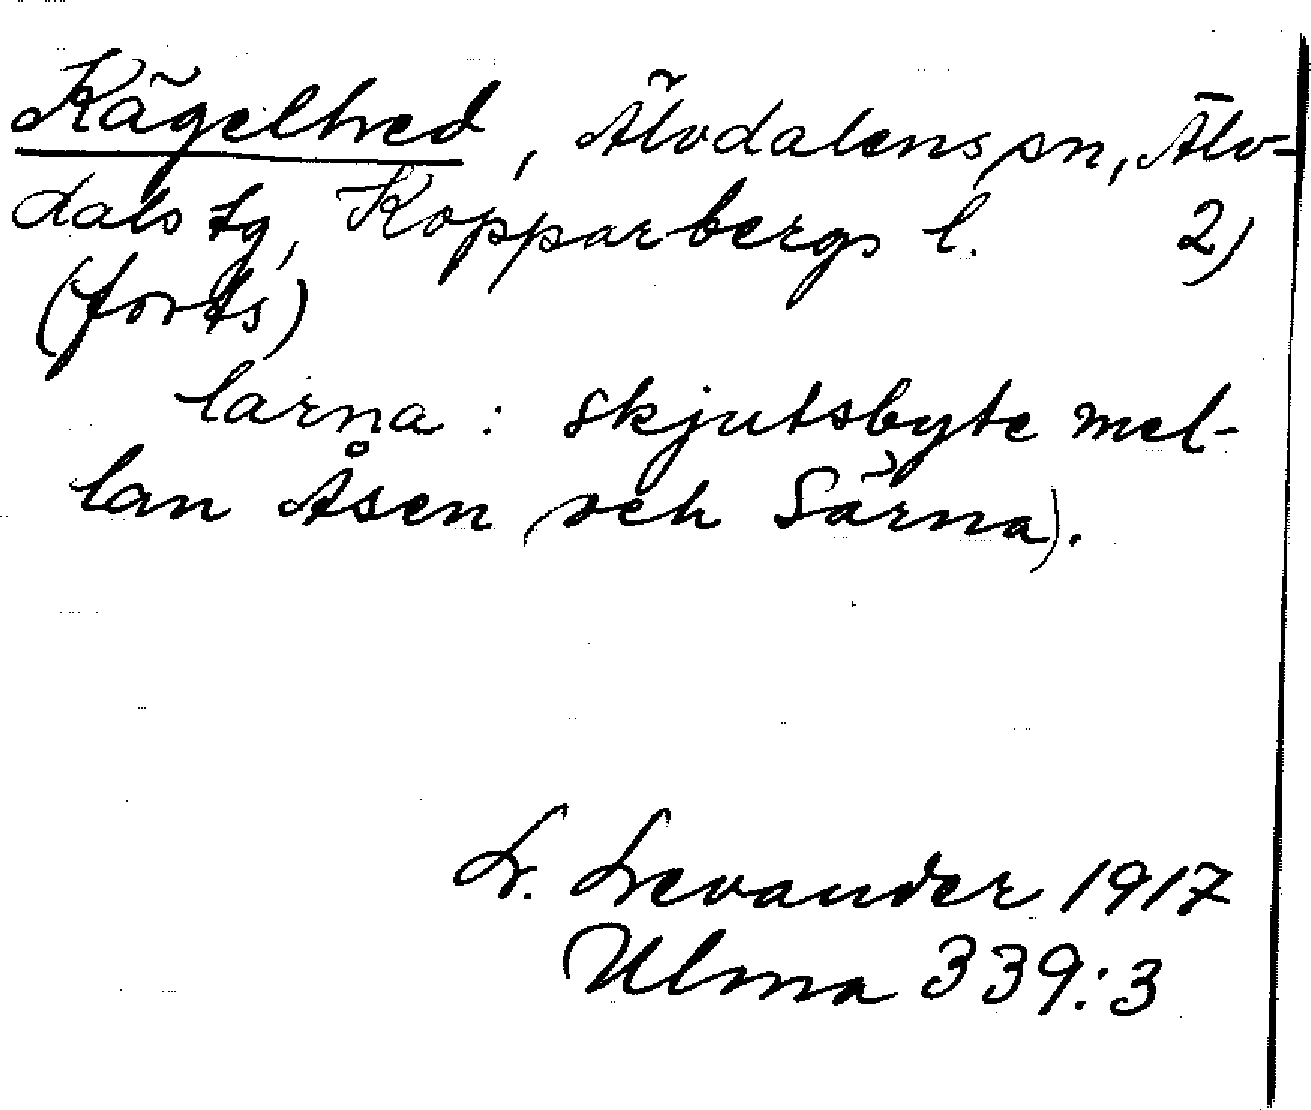 Kägelhed, Älvdalens sn, Älv-
dals tg, Kopparbergs l. 2)
(forts)
larna: skjutsbyte mel-
lan Åsen och Särna).
L. Levander 1917
Ulma 339:3